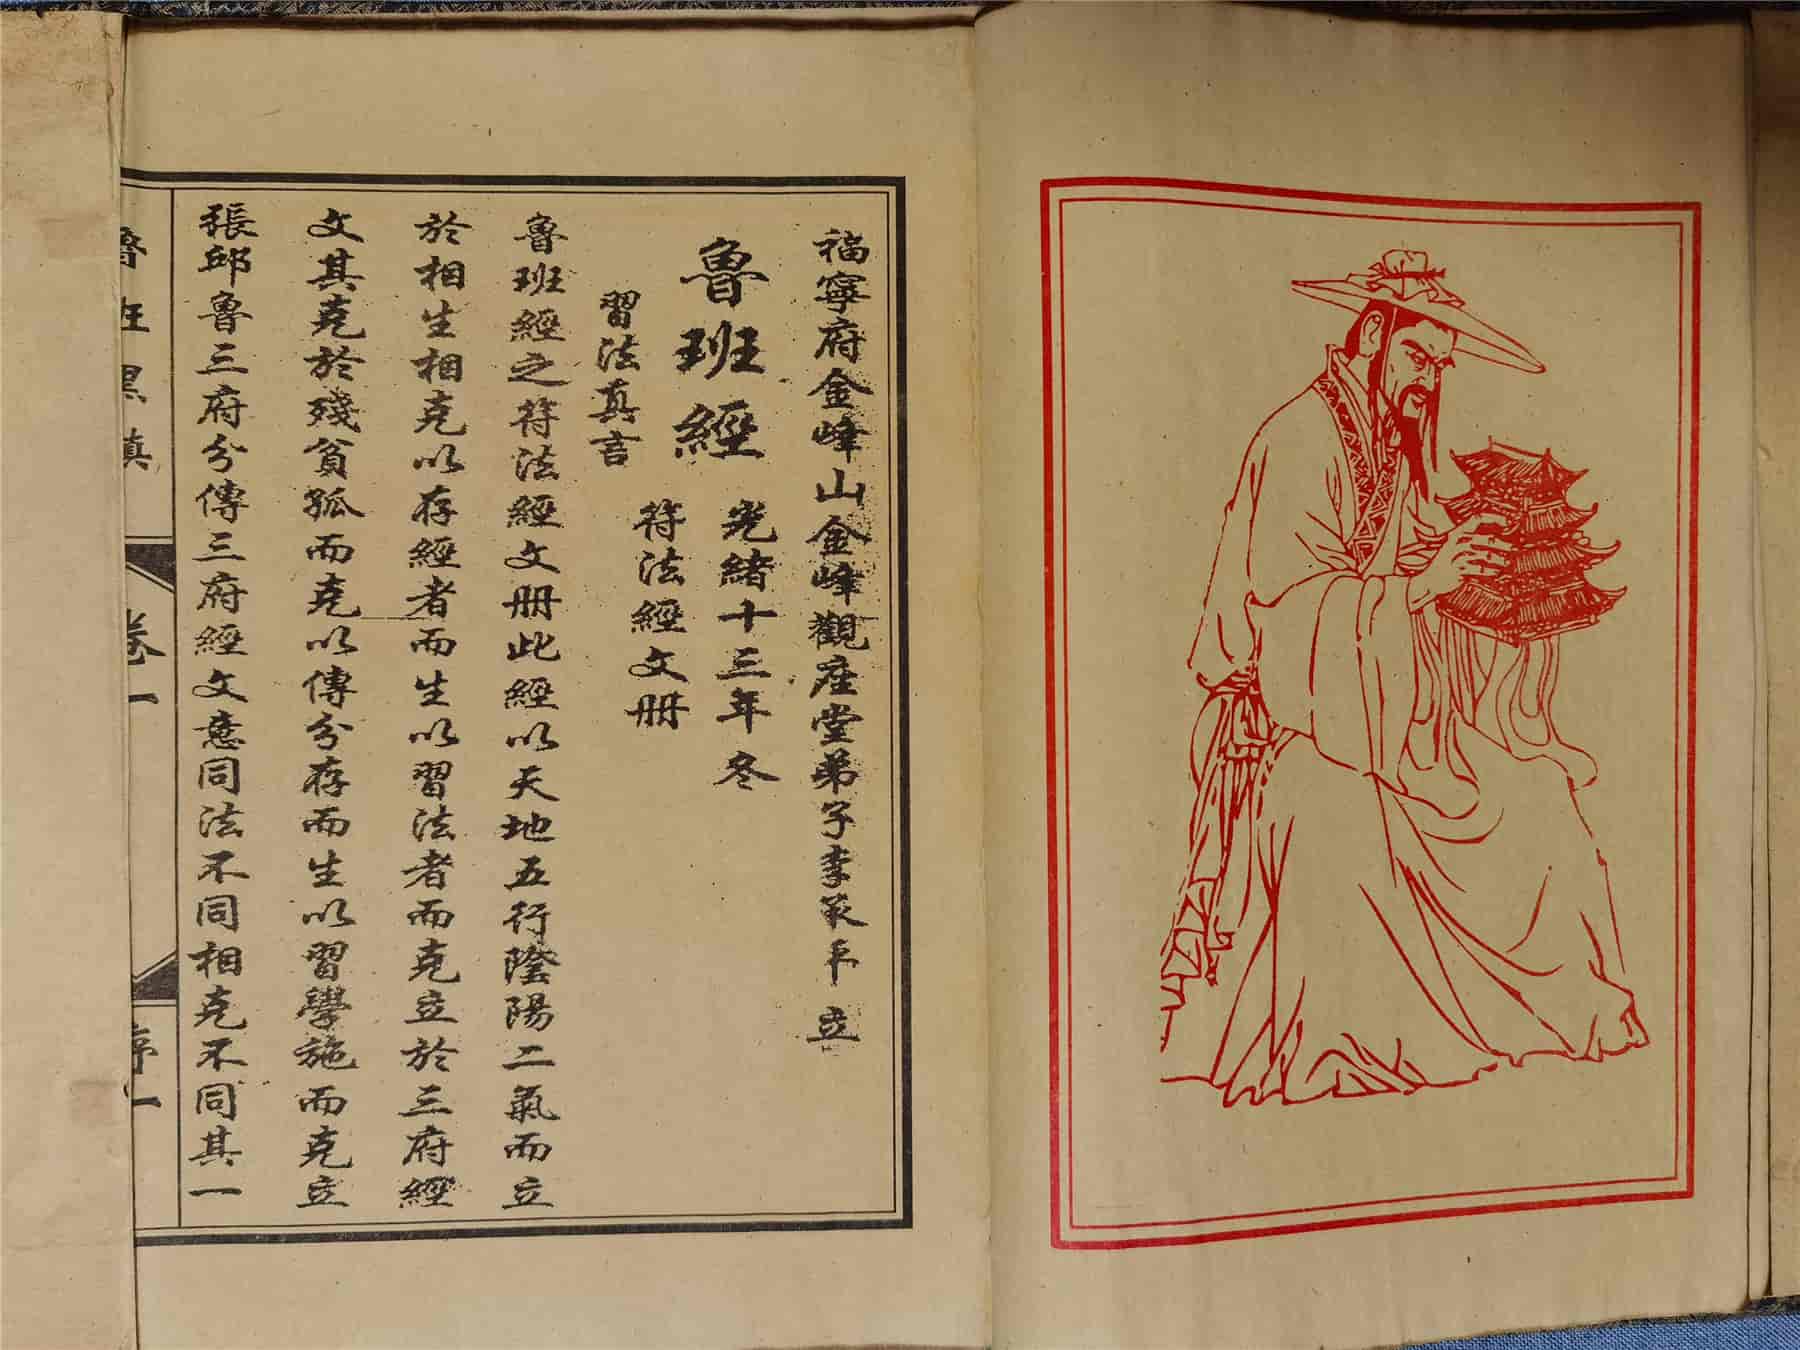 福寧府金峰山金峰觀座堂弟子李 立
魯班經
光緒十三年冬
符法經文册
習法真言
魯班經之符法經文册此經以天地五行陰陽二氣而立
於相生相克以存經者而生以習法者而克立於三府經
文其克於殘貧孤而克以傳分存而生以習學施而克立
張邱魯三府分傳三府經文意同法不同相克不同其一
魯班
卷一
序一